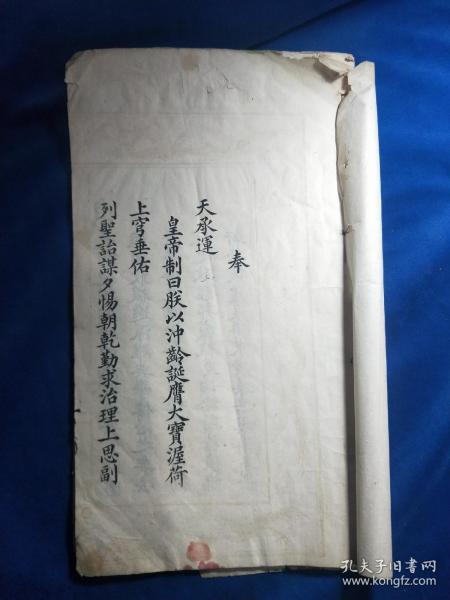 奉
天承運
皇帝制曰朕以沖齡誕膺大寶渥荷
上穹垂佑
列聖詒謀夕惕朝乾勤求治理上思副
孔夫子旧书网
www.kongfz.com